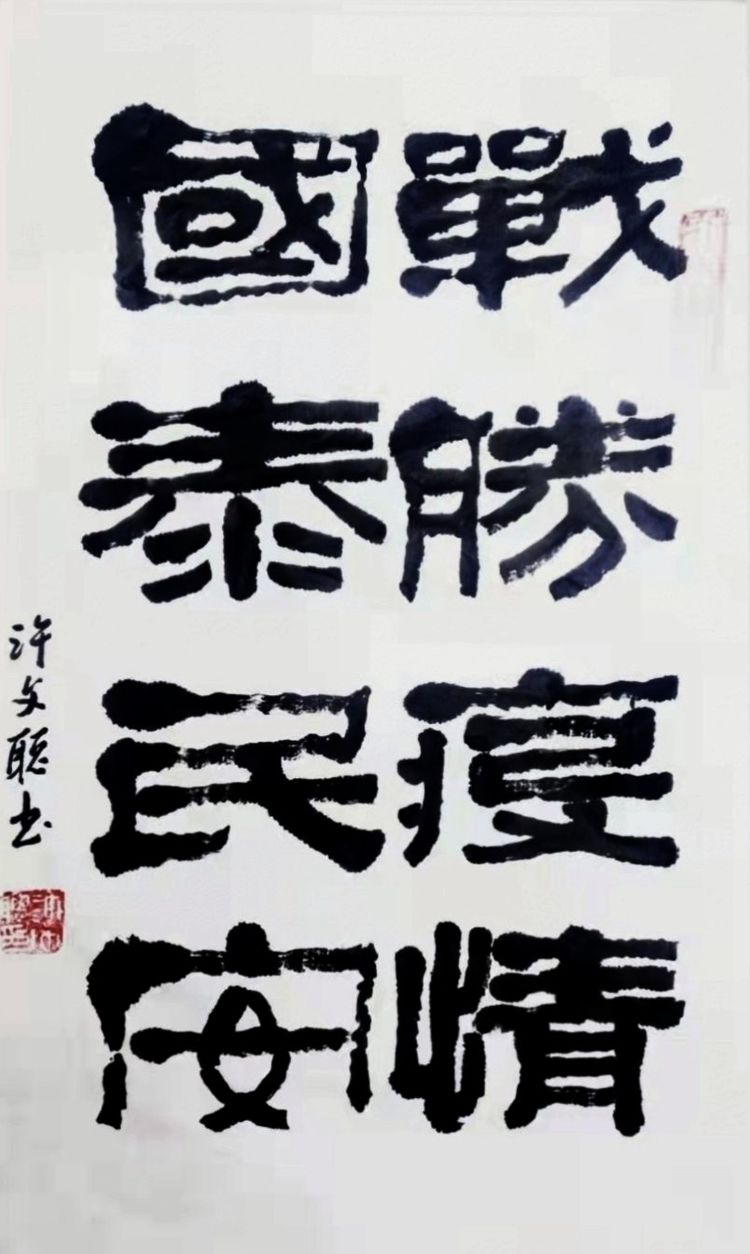 戰勝疫情
國泰民安
许文聪书